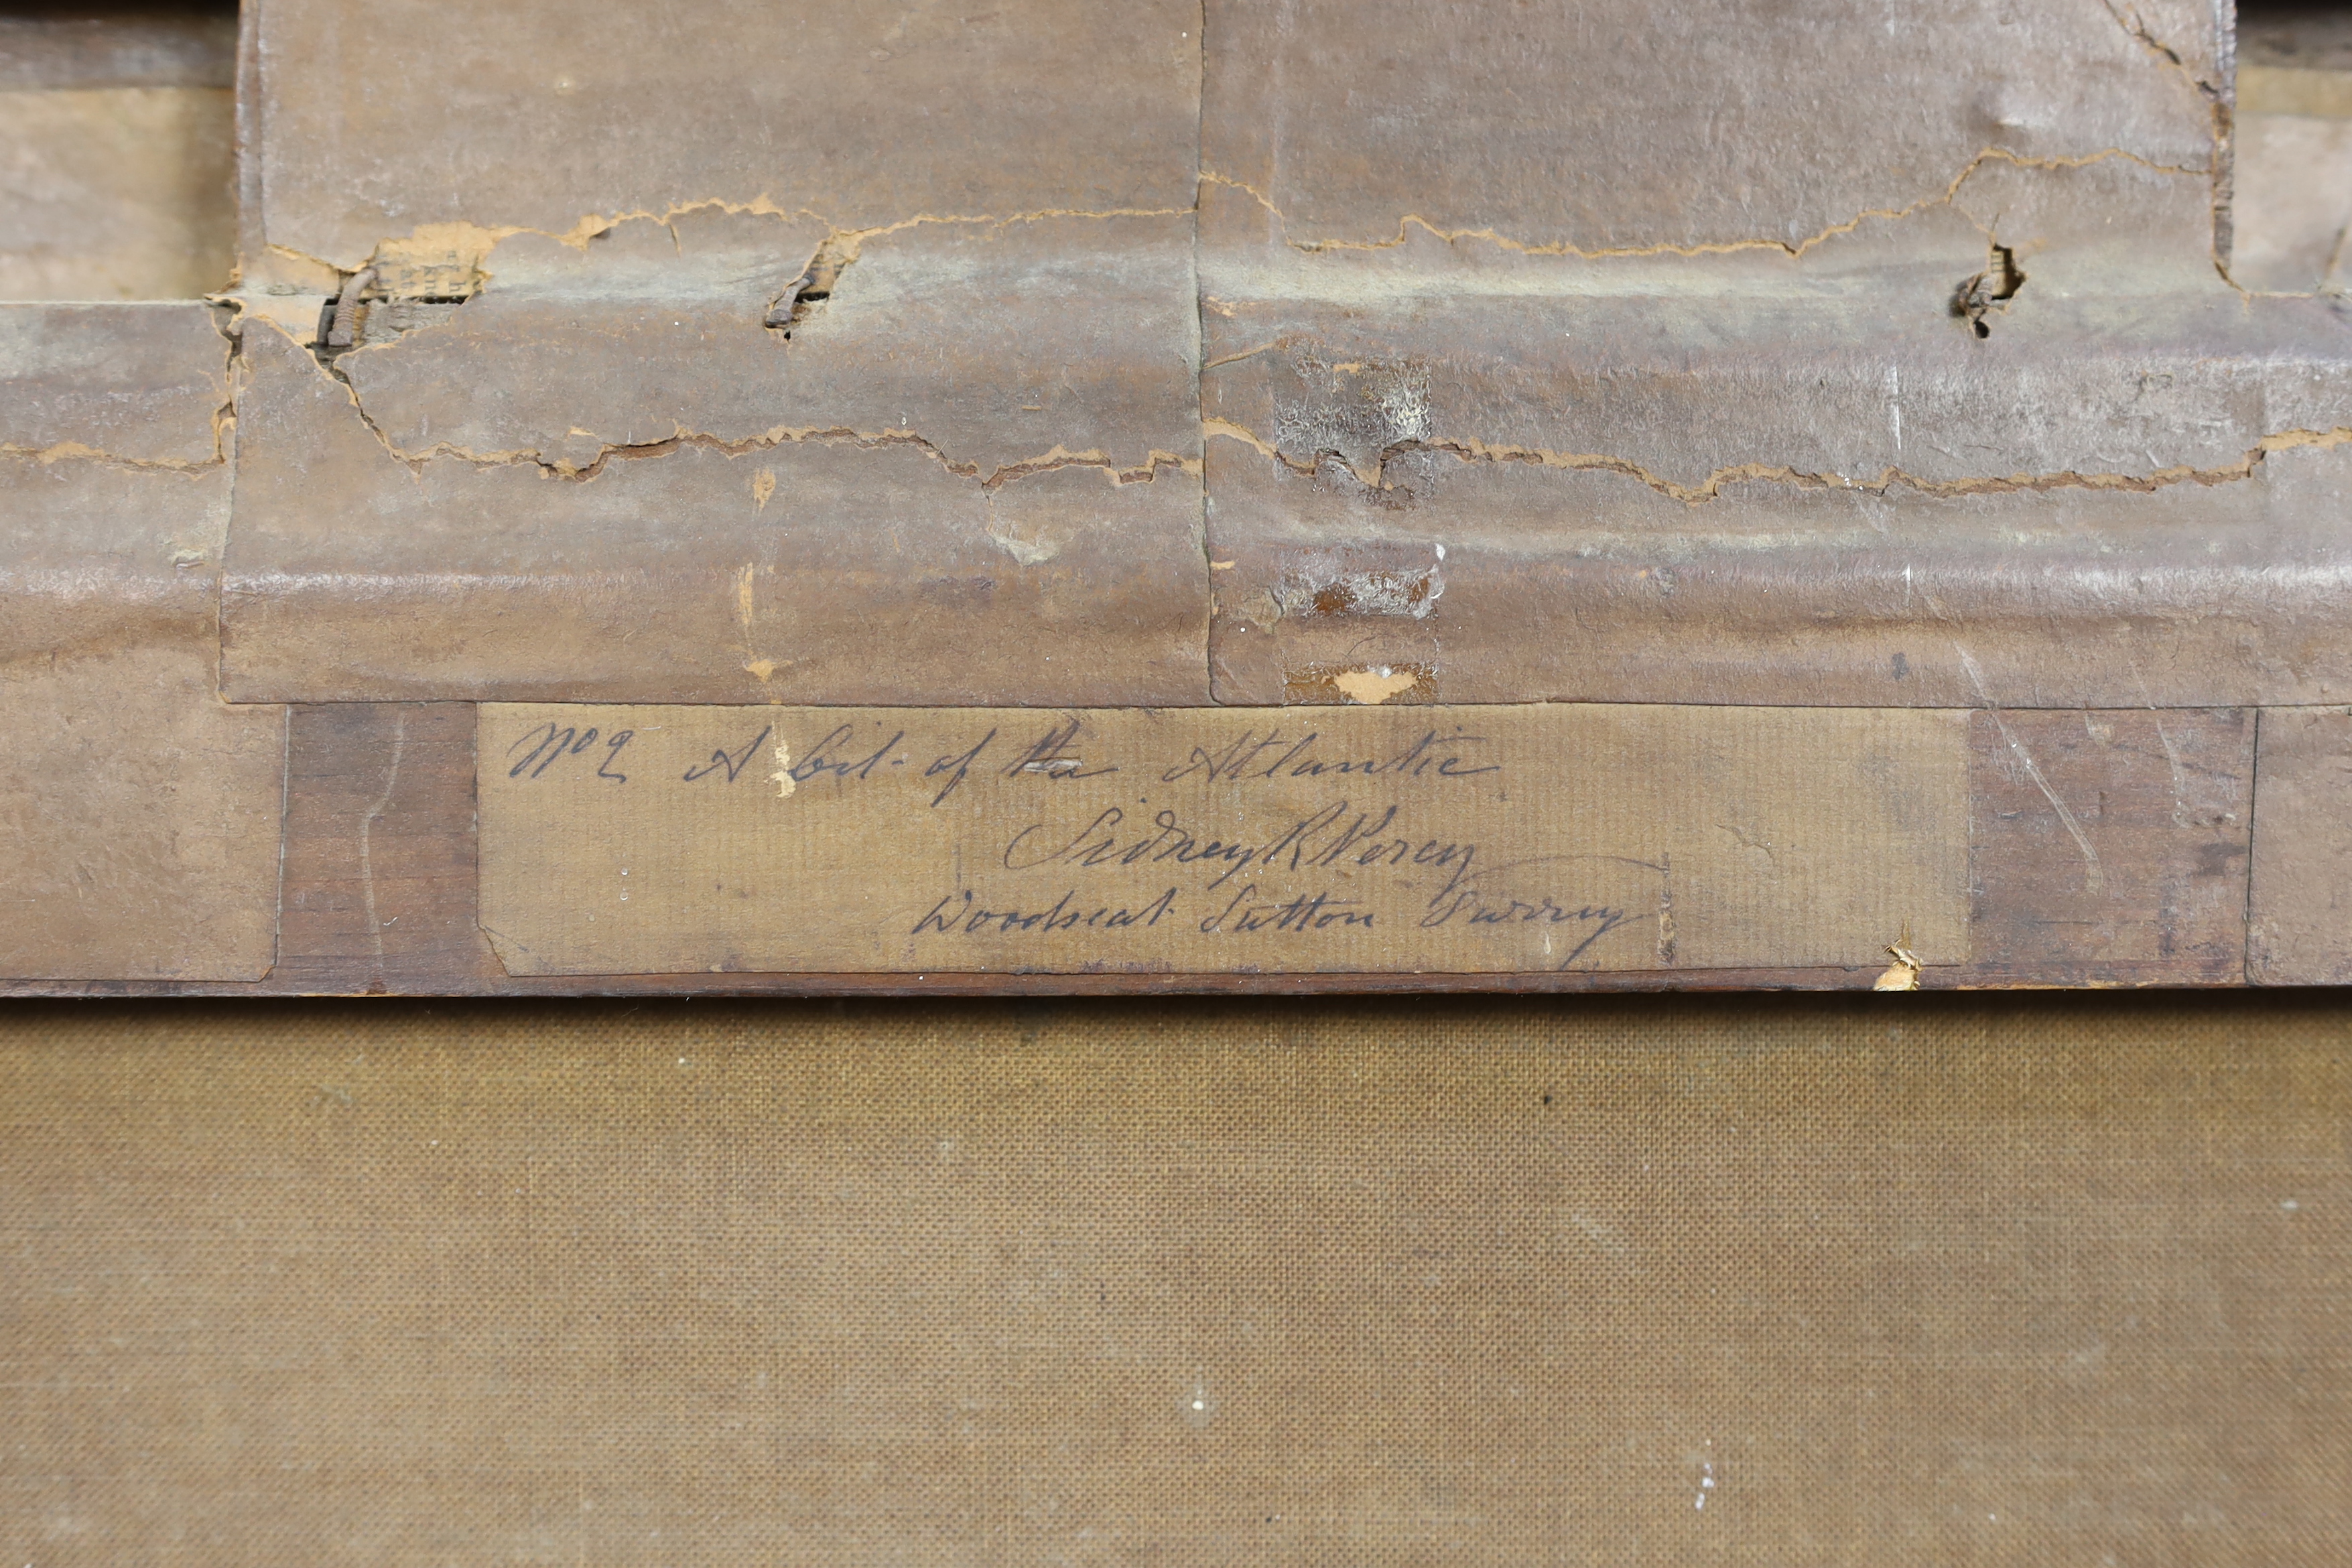 No 2 A bit of the Atlantic
Sidney R Percy
Woodseat Sutton Surrey